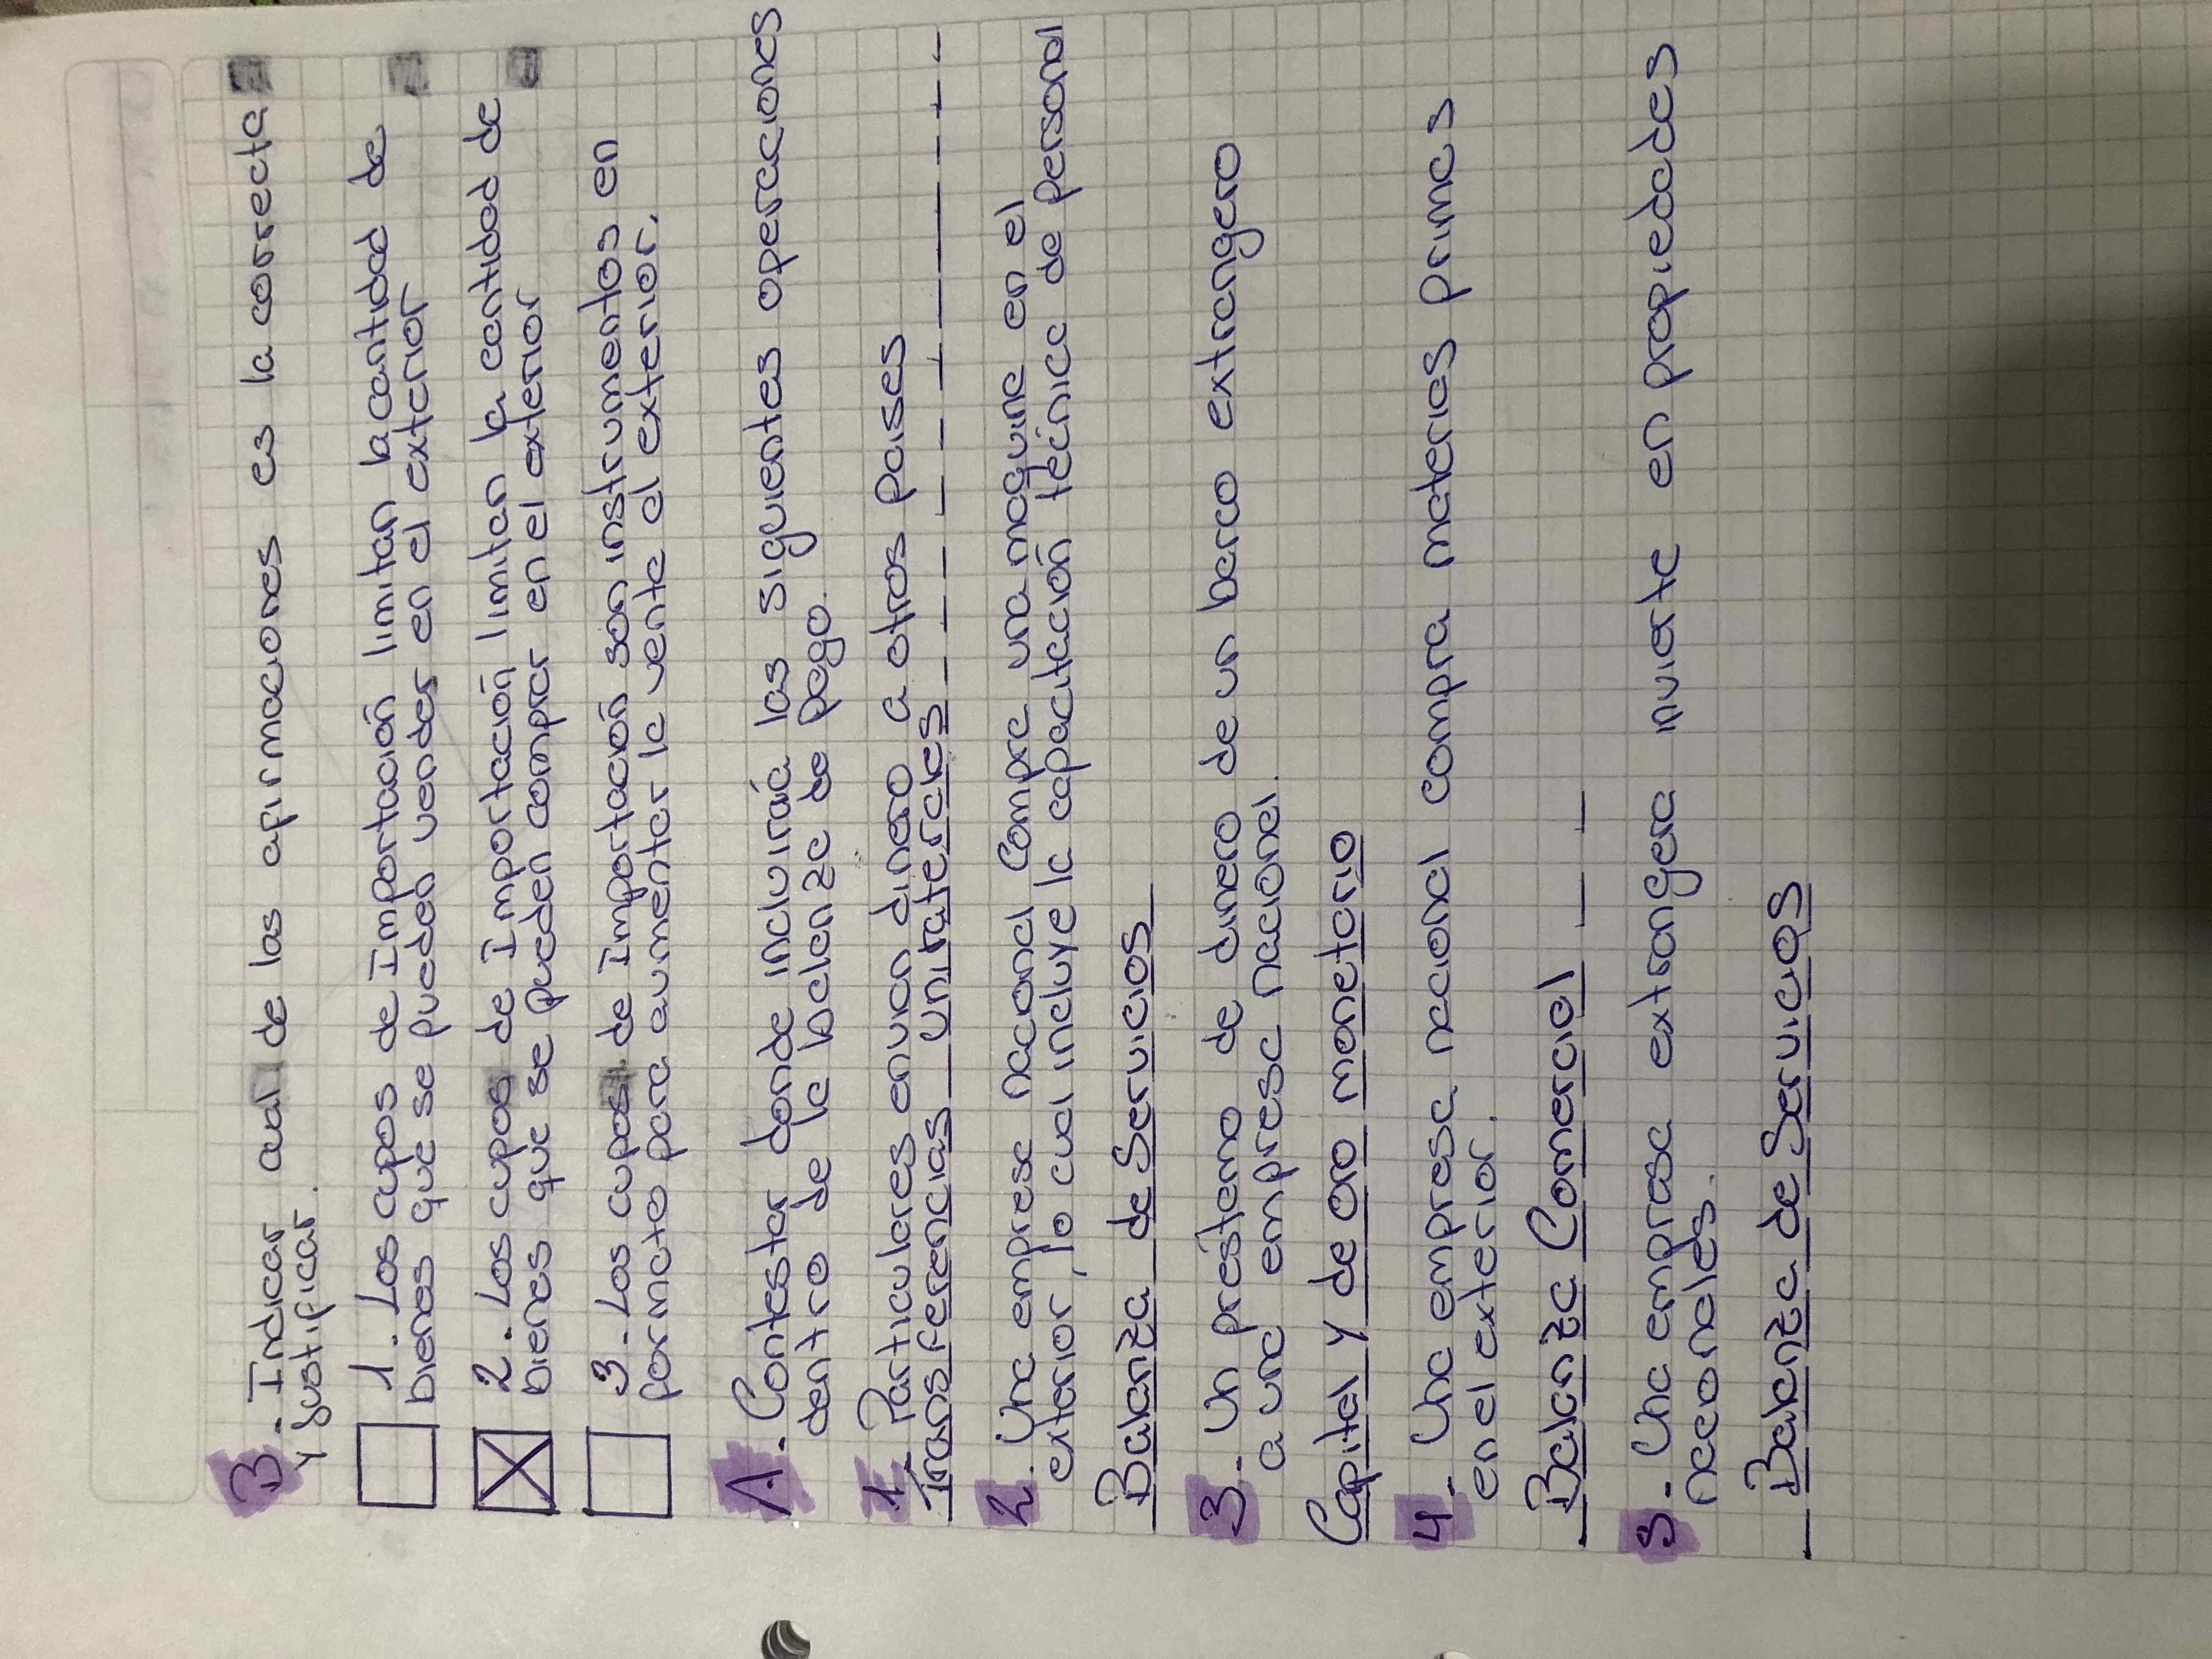 3.- Indicar cual de las afirmaciones es la correcta
y Justificar.
1.- Los cupos de Importación limitan la cantidad de
bienes que se pueden vender en el exterior
2.- Los cupos de Importación limitan la cantidad de
bienes que se pueden comprar en el exterior
3.- Los cupos de Importación son instrumentos en
formato para aumentar la venta el exterior.
A.- Contestar donde incluiría las siguientes operaciones
dentro de la balanza de pago.
1.- Particulares envian dinero a otros paises
Transferencias unilaterales
2.- Una empresa nacional compra una maquina en el
exterior, lo cual incluye la capacitación técnica de personal
Balanza de Servicios
3.- Un préstamo de dinero de un banco extrangero
a una empresa nacional.
Capital y de oro monetario
4.- Una empresa nacional compra materias primas
en el exterior.
Balanza Comercial
5.- Una empresa extrangera invierte en propiedades
nacionales.
Balanza de Servicios